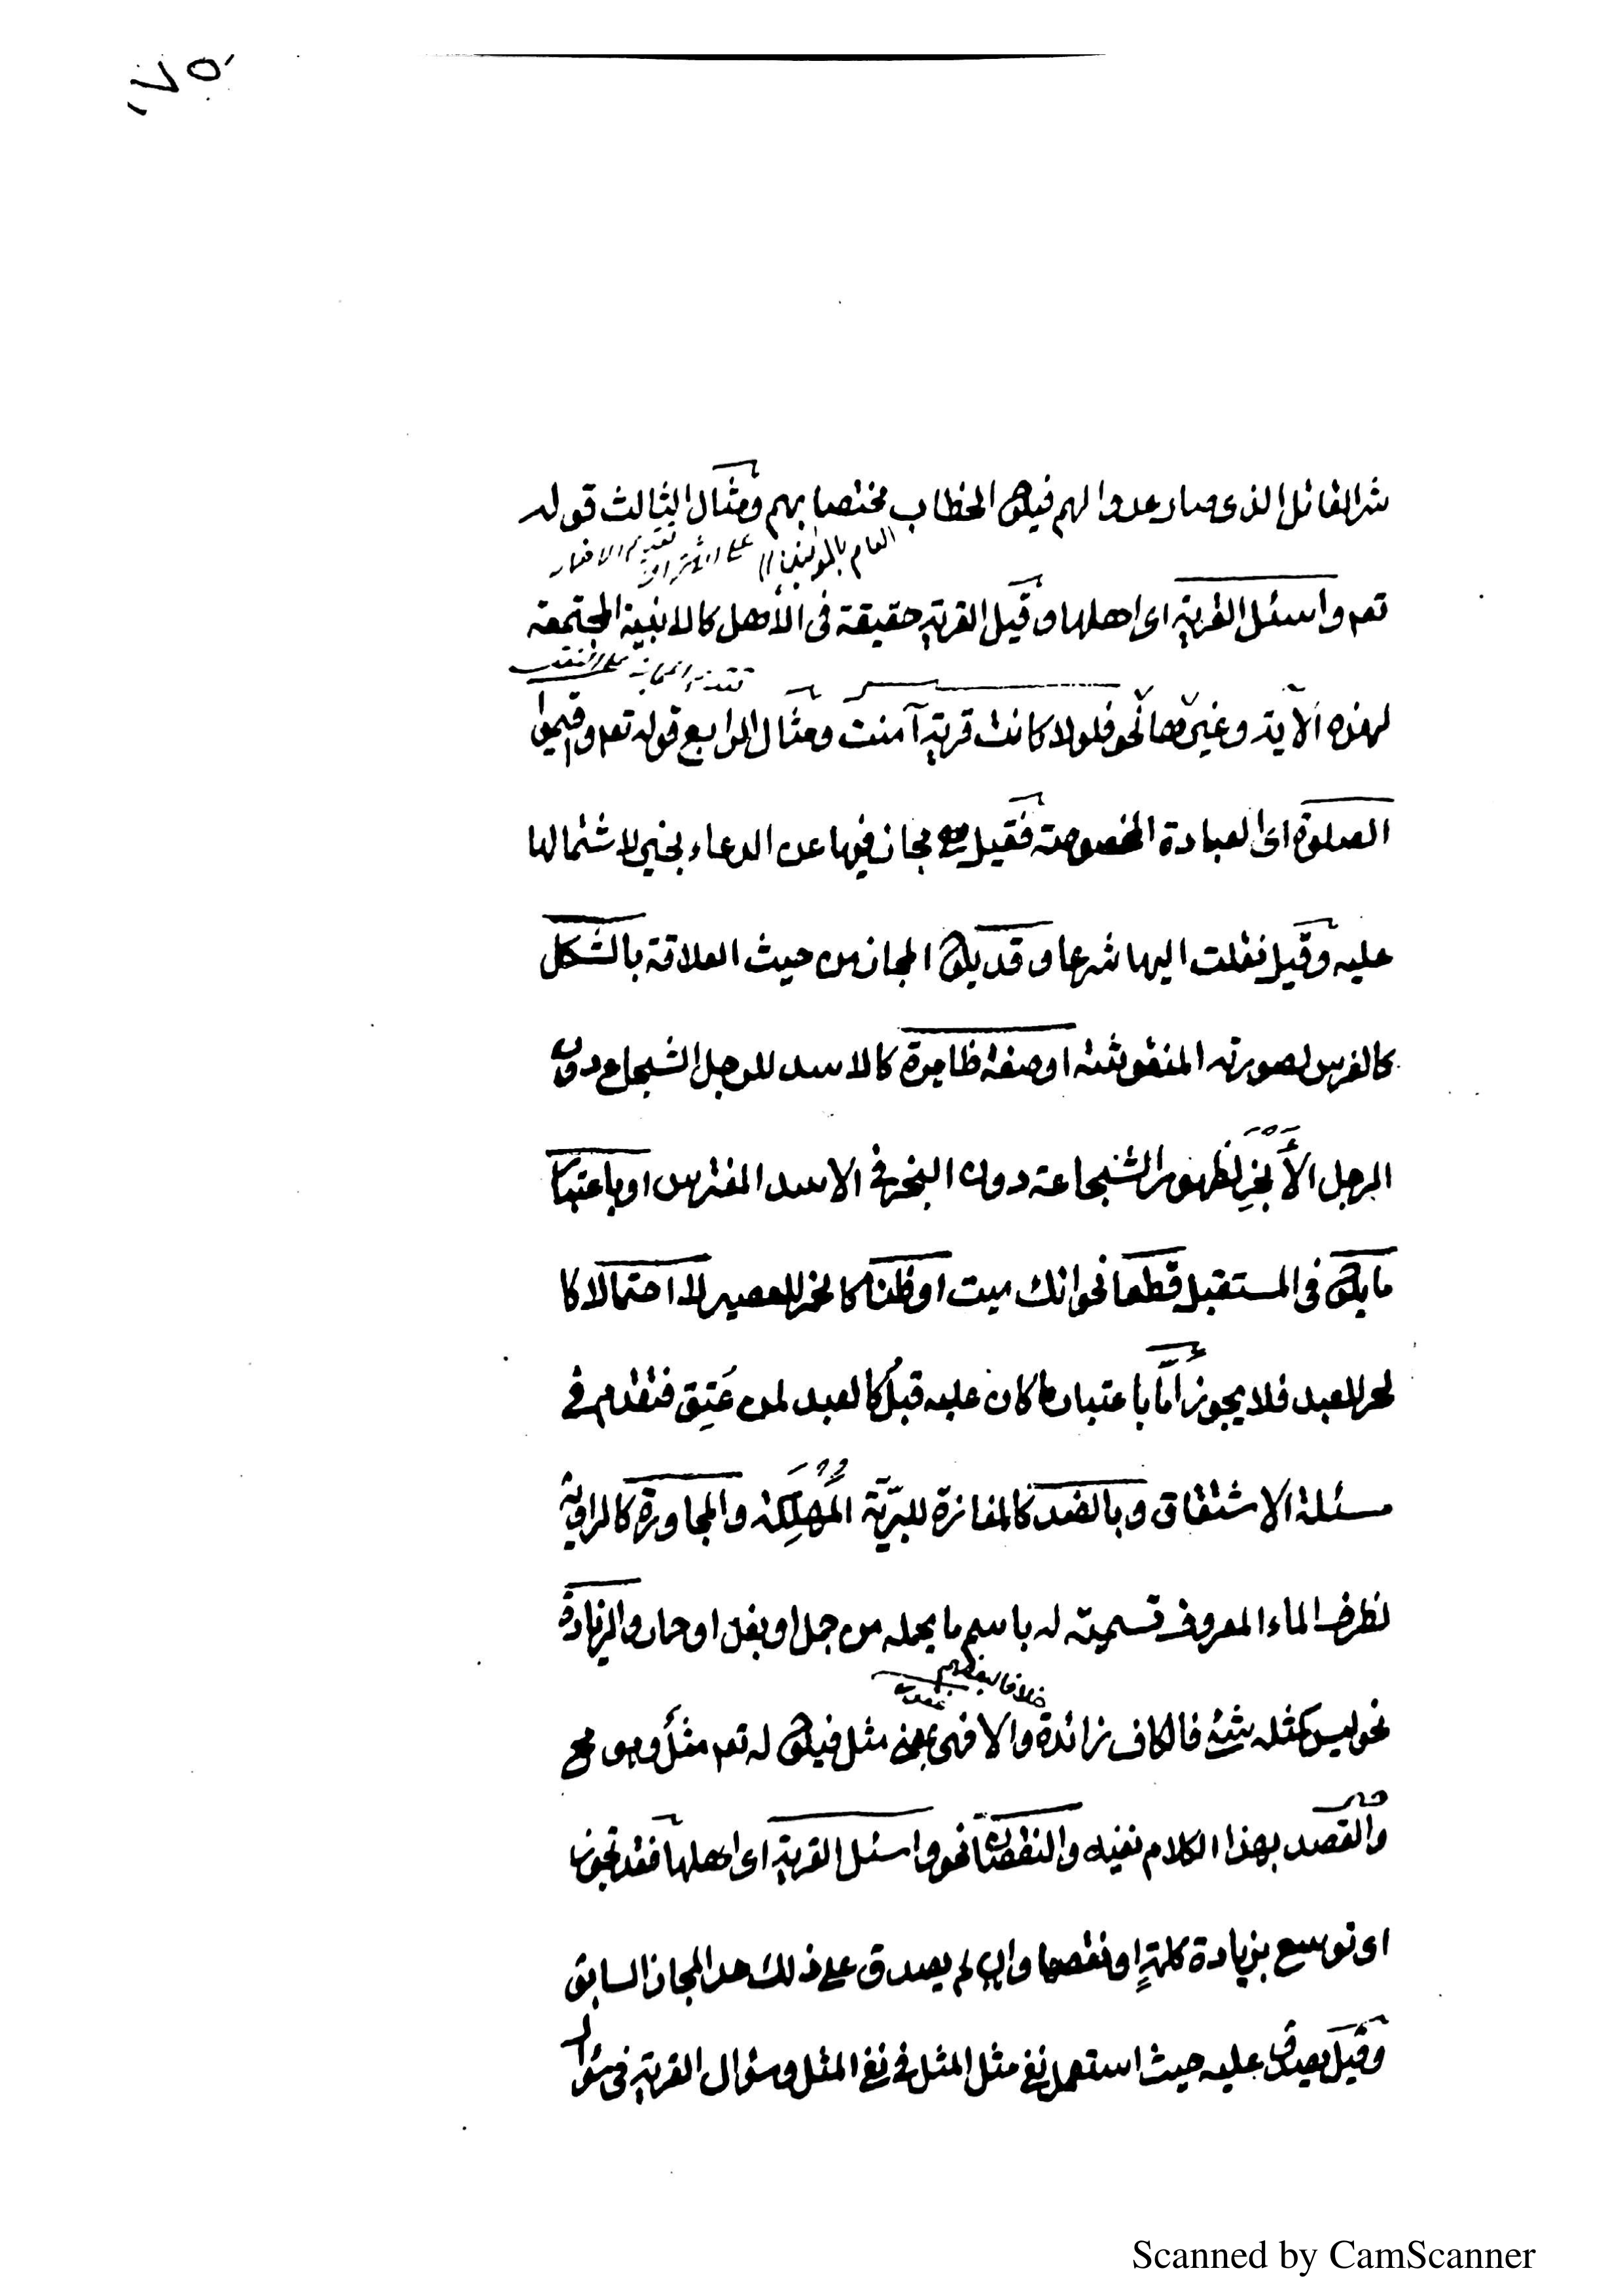 ١٧٥
شر القاتل الذى صار عدوا لهم فيكون الخطاب مختصا بهم ومثال الثالث قوله
العام بالمؤمنين
تعم واسئل القرية اى اهلها وقيل القرية حقيقة فى الأهل كالابنية المجتمعة
لهذه الآية وغيرها نحو فلولا كانت قرية آمنت ومثال الرابع قوله تعم واقيموا
الصلوة اى العبادة المخصوصة فقيل هى مجاز فيها عن الدعاء بخير لاشتمالها
عليه وقيل نقلت اليها شرعا وقد يكون المجاز من حيث العلاقة بالشكل
كالفرس لصورته المنقوشة او صفة ظاهرة كالاسد للرجل الشجاع دون
الرجل الأَبْخَرِ لظهور الشجاعة دون البخر فى الاسد المفترس او باعتبار
ما يكون فى المستقبل قطعا نحو انك ميت او ظنا كالخمر للعصير لا احتمالا كا
لحر للعبد فلا يجوز أمّا باعتبار ما كان عليه قبلُ كالعبد لمن عَتِق فتقدم فى
مسئلة الاشتقاق وبالضد كالمفازة للبرّيّة المُهْلِكة والمجاورة كالراوية
لظرف الماء المعروف تسمية له باسم ما يحمله من جمل او بغل او حمار والزيادة
خلافا لبعضهم
نحو ليس كمثله شئ فالكاف زائدة والا فهى بمعنى مثل فيكون له تعم مثلٌ وهو مح
والقصد بهذا الكلام نفيه والنقصان نحو واسئل القرية اى اهلها فقد تجوز
اى توسع بزيادة كلمةٍ او نقصها وان لم يصدق على ذلك حد المجاز السابق
وقيل يصدق عليه حيث استعمل نفى مثل المثل فى نفى المثل وسؤال القرية فى سؤال
Scanned by CamScanner